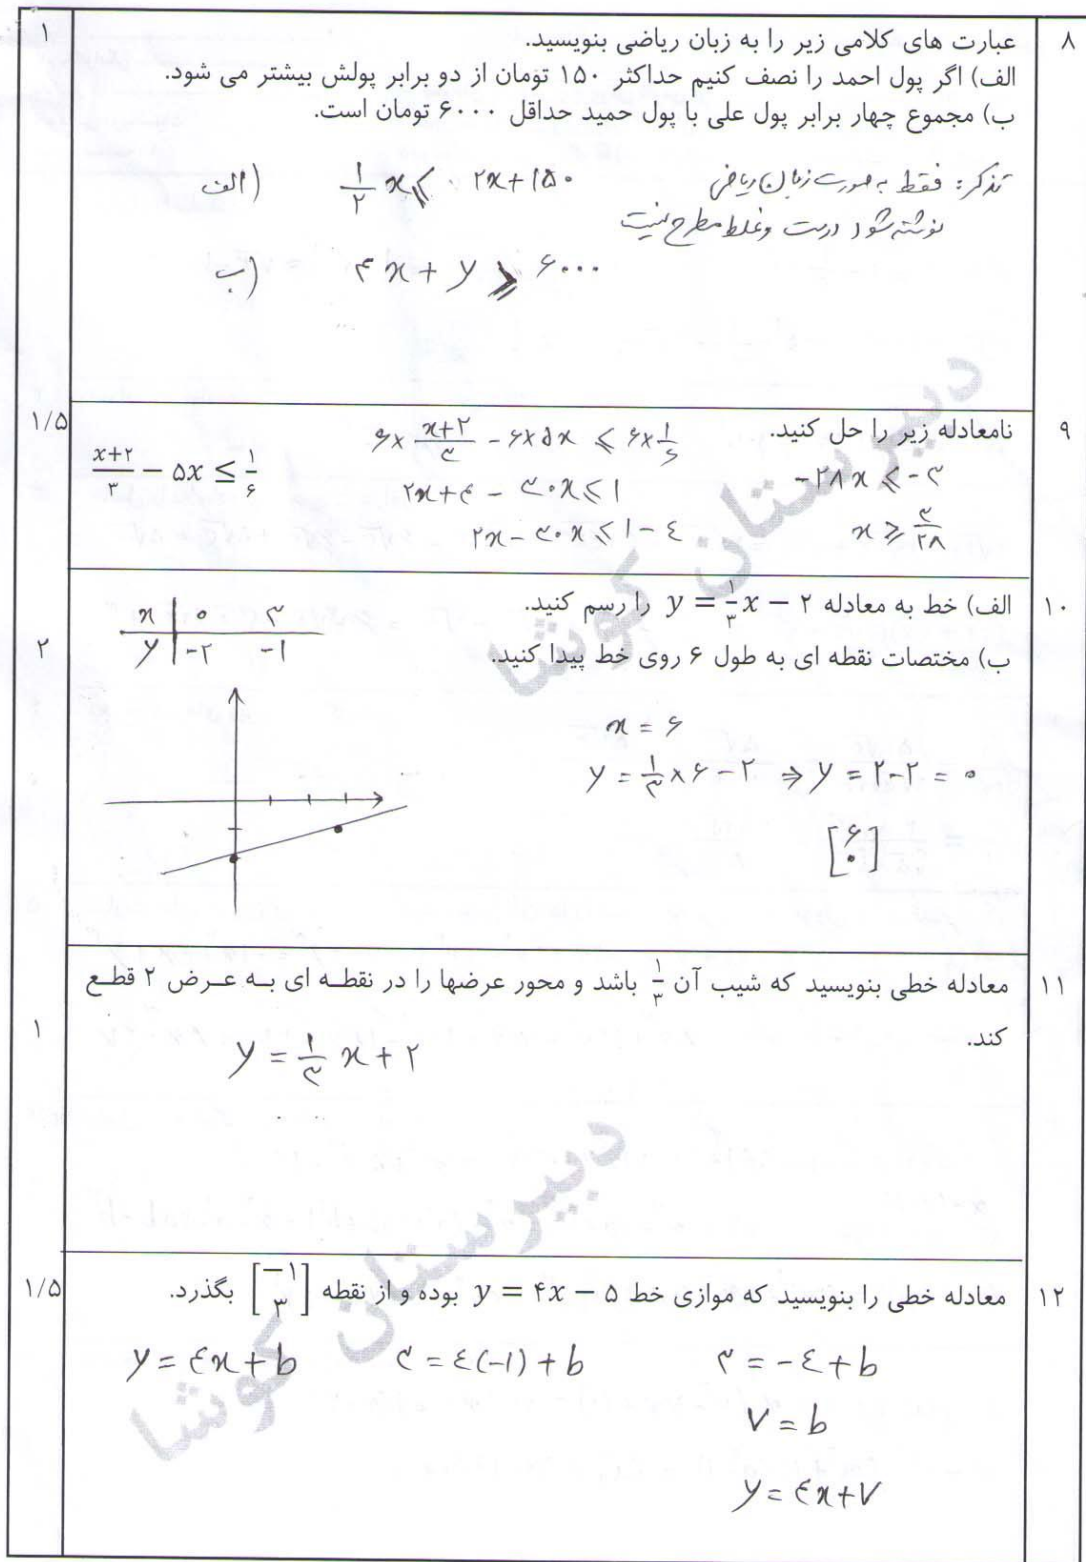 ۸
۱
عبارت های کلامی زیر را به زبان ریاضی بنویسید.
الف) اگر پول احمد را نصف کنیم حداکثر ۱۵۰ تومان از دو برابر پولش بیشتر می شود.
ب) مجموع چهار برابر پول علی با پول حمید حداقل ۶۰۰۰ تومان است.
تذکر: فقط به صورت زبان ریاضی
نوشته شود درست و غلط مطرح نیست
الف) ۱/۲ x ≤ ۲x+۱۵۰
ب) ۴x + y ≥ ۶۰۰۰
۹
۱/۵
نامعادله زیر را حل کنید.
(x+۲)/۳ − ۵x ≤ ۱/۶
۶× (x+۲)/۳ − ۶×۵x ≤ ۶× ۱/۶
۲x+۴ − ۳۰x ≤ ۱
۲x − ۳۰x ≤ ۱ − ۴
−۲۸x ≤ −۳
x ≥ ۳/۲۸
۱۰
۲
الف) خط به معادله y = ۱/۳ x − ۲ را رسم کنید.
ب) مختصات نقطه ای به طول ۶ روی خط پیدا کنید.
x | ۰ ۳
y | −۲ −۱
x = ۶
y = ۱/۳ × ۶ − ۲ ⇒ y = ۲−۲ = ۰
[۶ ۰]
۱۱
۱
معادله خطی بنویسید که شیب آن ۱/۳ باشد و محور عرضها را در نقطه ای به عرض ۲ قطع
کند.
y = ۱/۳ x + ۲
۱۲
۱/۵
معادله خطی را بنویسید که موازی خط y = ۴x − ۵ بوده و از نقطه [−۱ ۳] بگذرد.
y = ۴x + b
۳ = ۴(−۱) + b
۳ = −۴ + b
۷ = b
y = ۴x + ۷
دبیرستان کوشا
دبیرستان کوشا